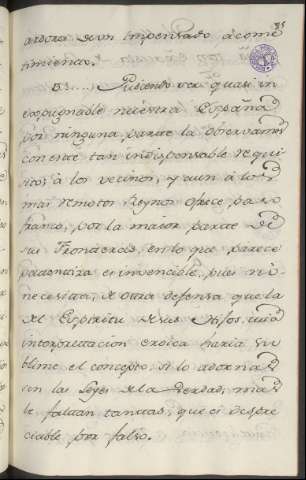 ardores de un impensado acome
timiento.
53.... Pudiendo ser quasi in
expugnable nuestra España
por ninguna parte la observamos
con este tan indispensable requi
sito: a los vecinos, y aun á los
mas remotos Reynos ofrece paso
franco, por la maior parte de
sus Fronteras, en lo que parece
se ostenta é invencible, pues no
necesita, de otra defensa que la
de el Espiritu de sus Hijos, cuia
interpretacion eroica haria su
blime el concepto, si lo adornas
en las Leyes de la Verdad, mas
le faltan tantas, que es despre
ciable por falso.